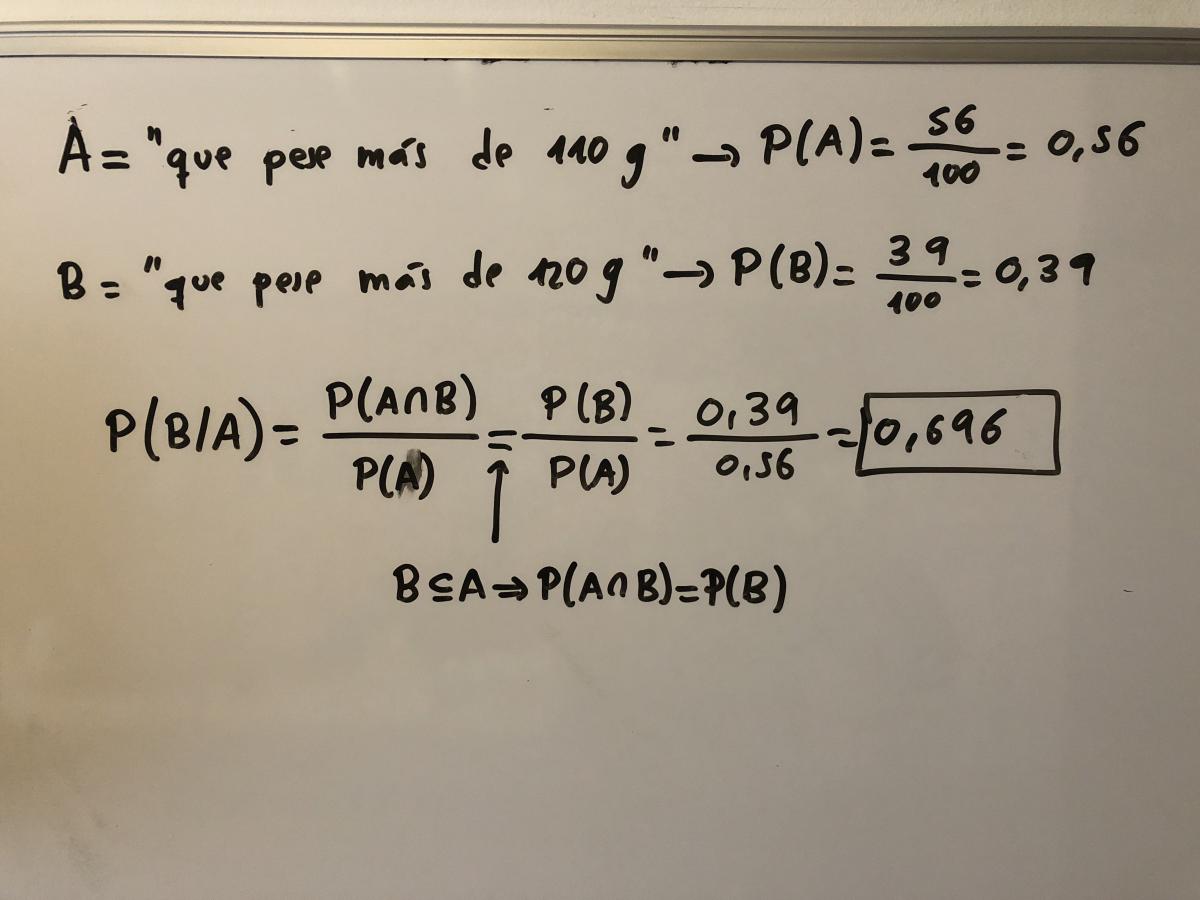 A = "que pese más de 110 g" → P(A) = 56/100 = 0,56
B = "que pese más de 120 g" → P(B) = 39/100 = 0,39
P(B/A) = P(A∩B)/P(A) = P(B)/P(A) = 0,39/0,56 = 0,696
↑
B⊆A ⇒ P(A∩B) = P(B)